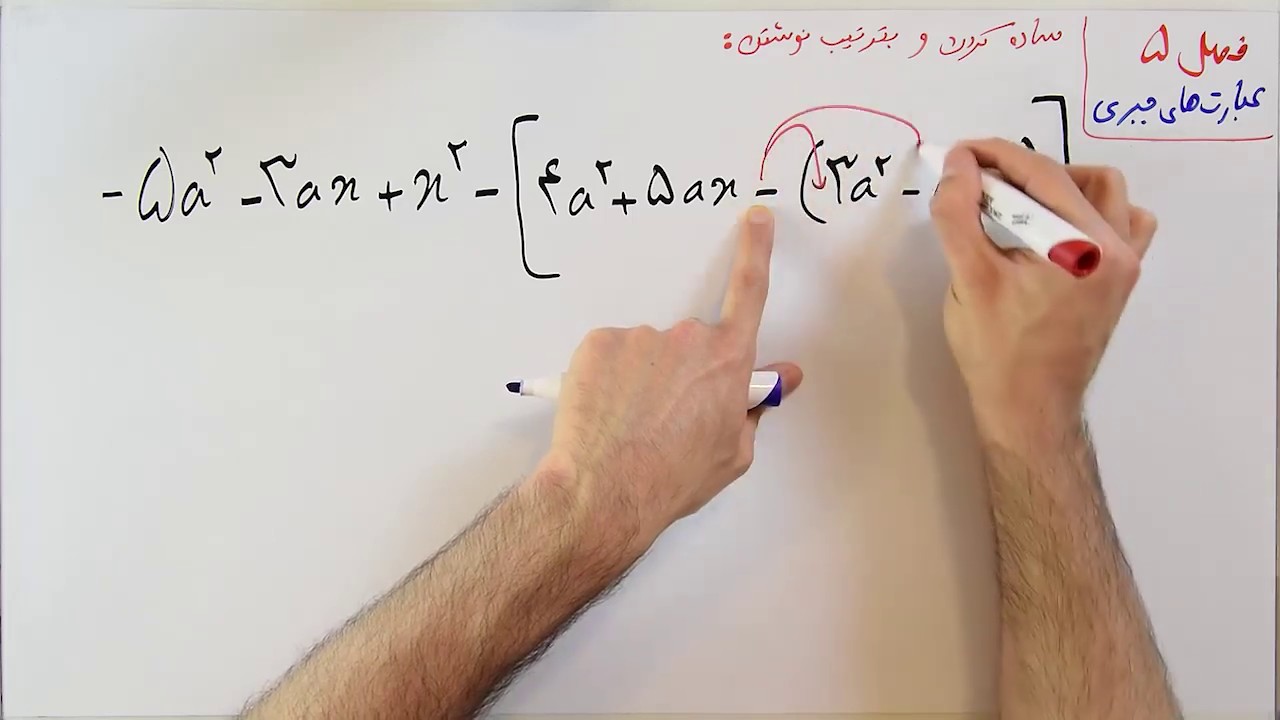 فصل ۵
عبارت‌های جبری
ساده کردن و بترتیب نوشتن:
-۵a^۲ -۳ax + x^۲ - [۴a^۲ + ۵ax - (۳a^۲ -